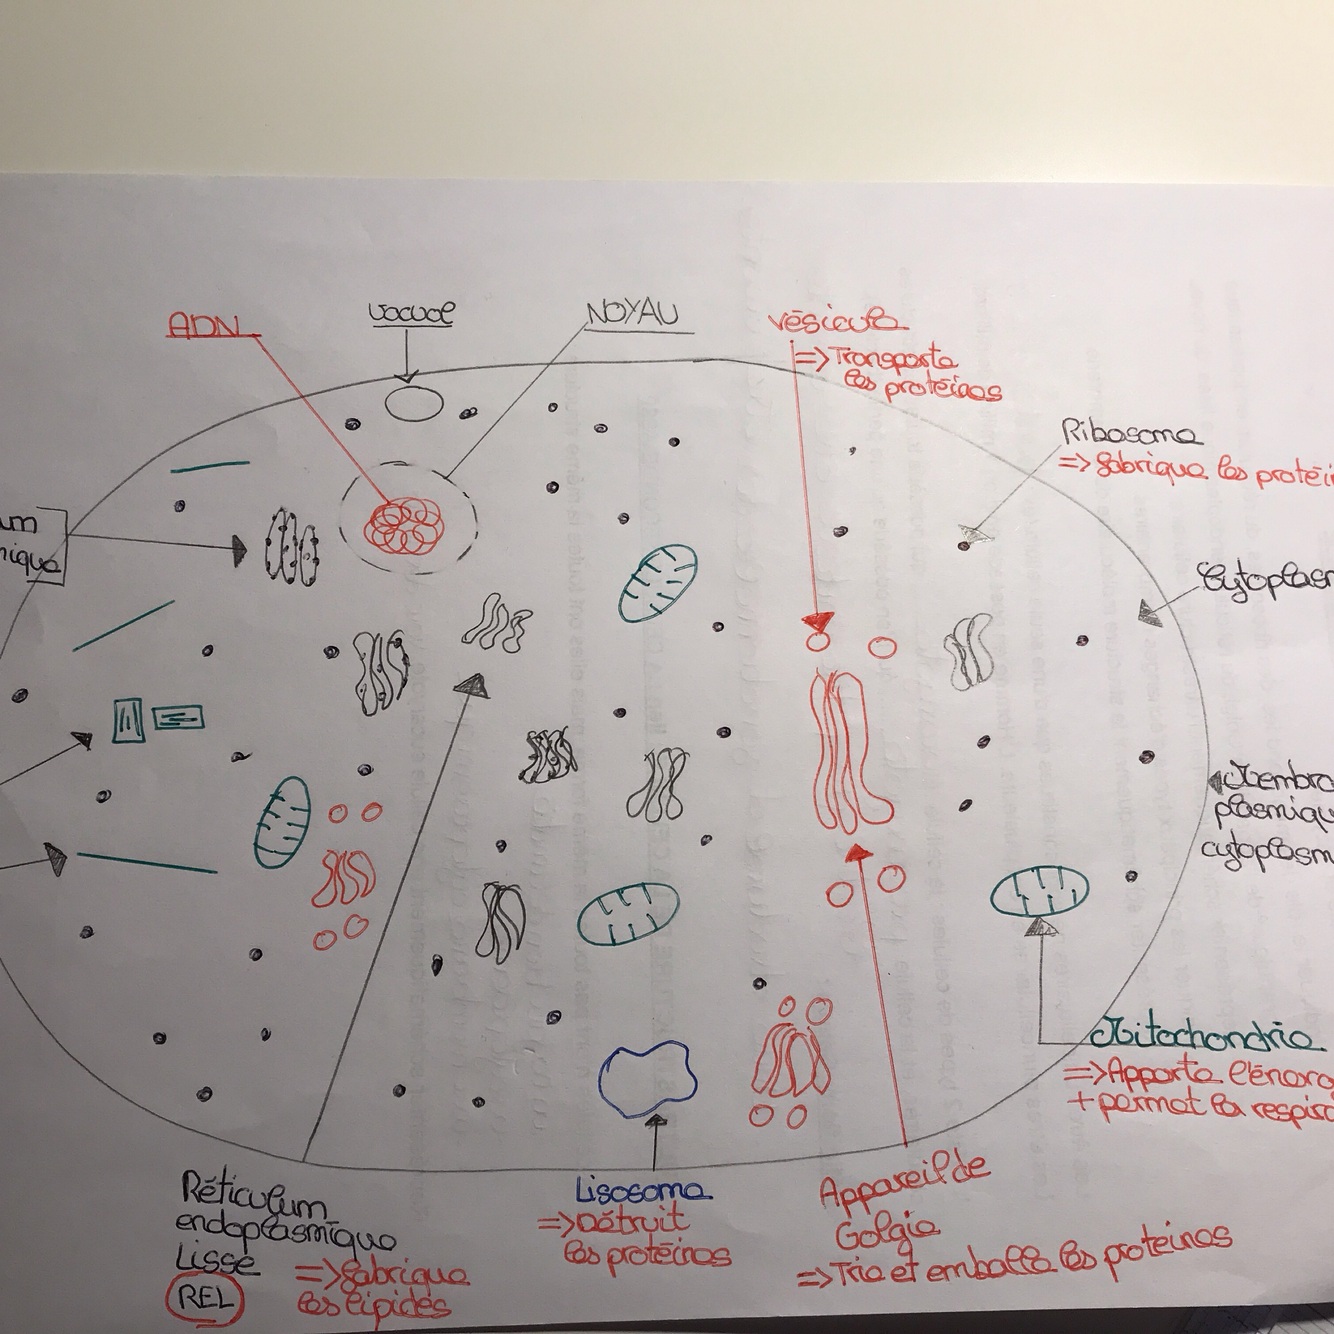 ADN
vacuole
NOYAU
Vésicule
=> Transporte
les protéines
Ribosome
=> fabrique les protéi
um
nique
Cytoplasm
Membra
plasmiqu
cytoplasm
Mitochondrie
=> Apporte l'énerg
+ permet la respira
Réticulum
endoplasmique
Lisse
REL
=> fabrique
les lipides
Lisosome
=> Détruit
les protéines
Appareil de
Golgie
=> Trie et emballe les proteines